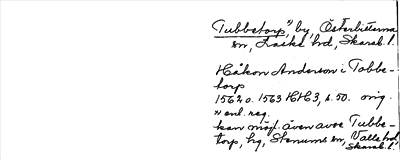 Tubbetorp" by, Österbitterna
sn, Laske hd, Skarab. l.
Håkon Anderson i Tobbe-
torp
1562 o. 1563 HH3, s. 50. orig.
" enl. reg.
kan möjl. även avse Tubbe-
torp, hg, Stenums sn, Valle hd,
Skarab. l.